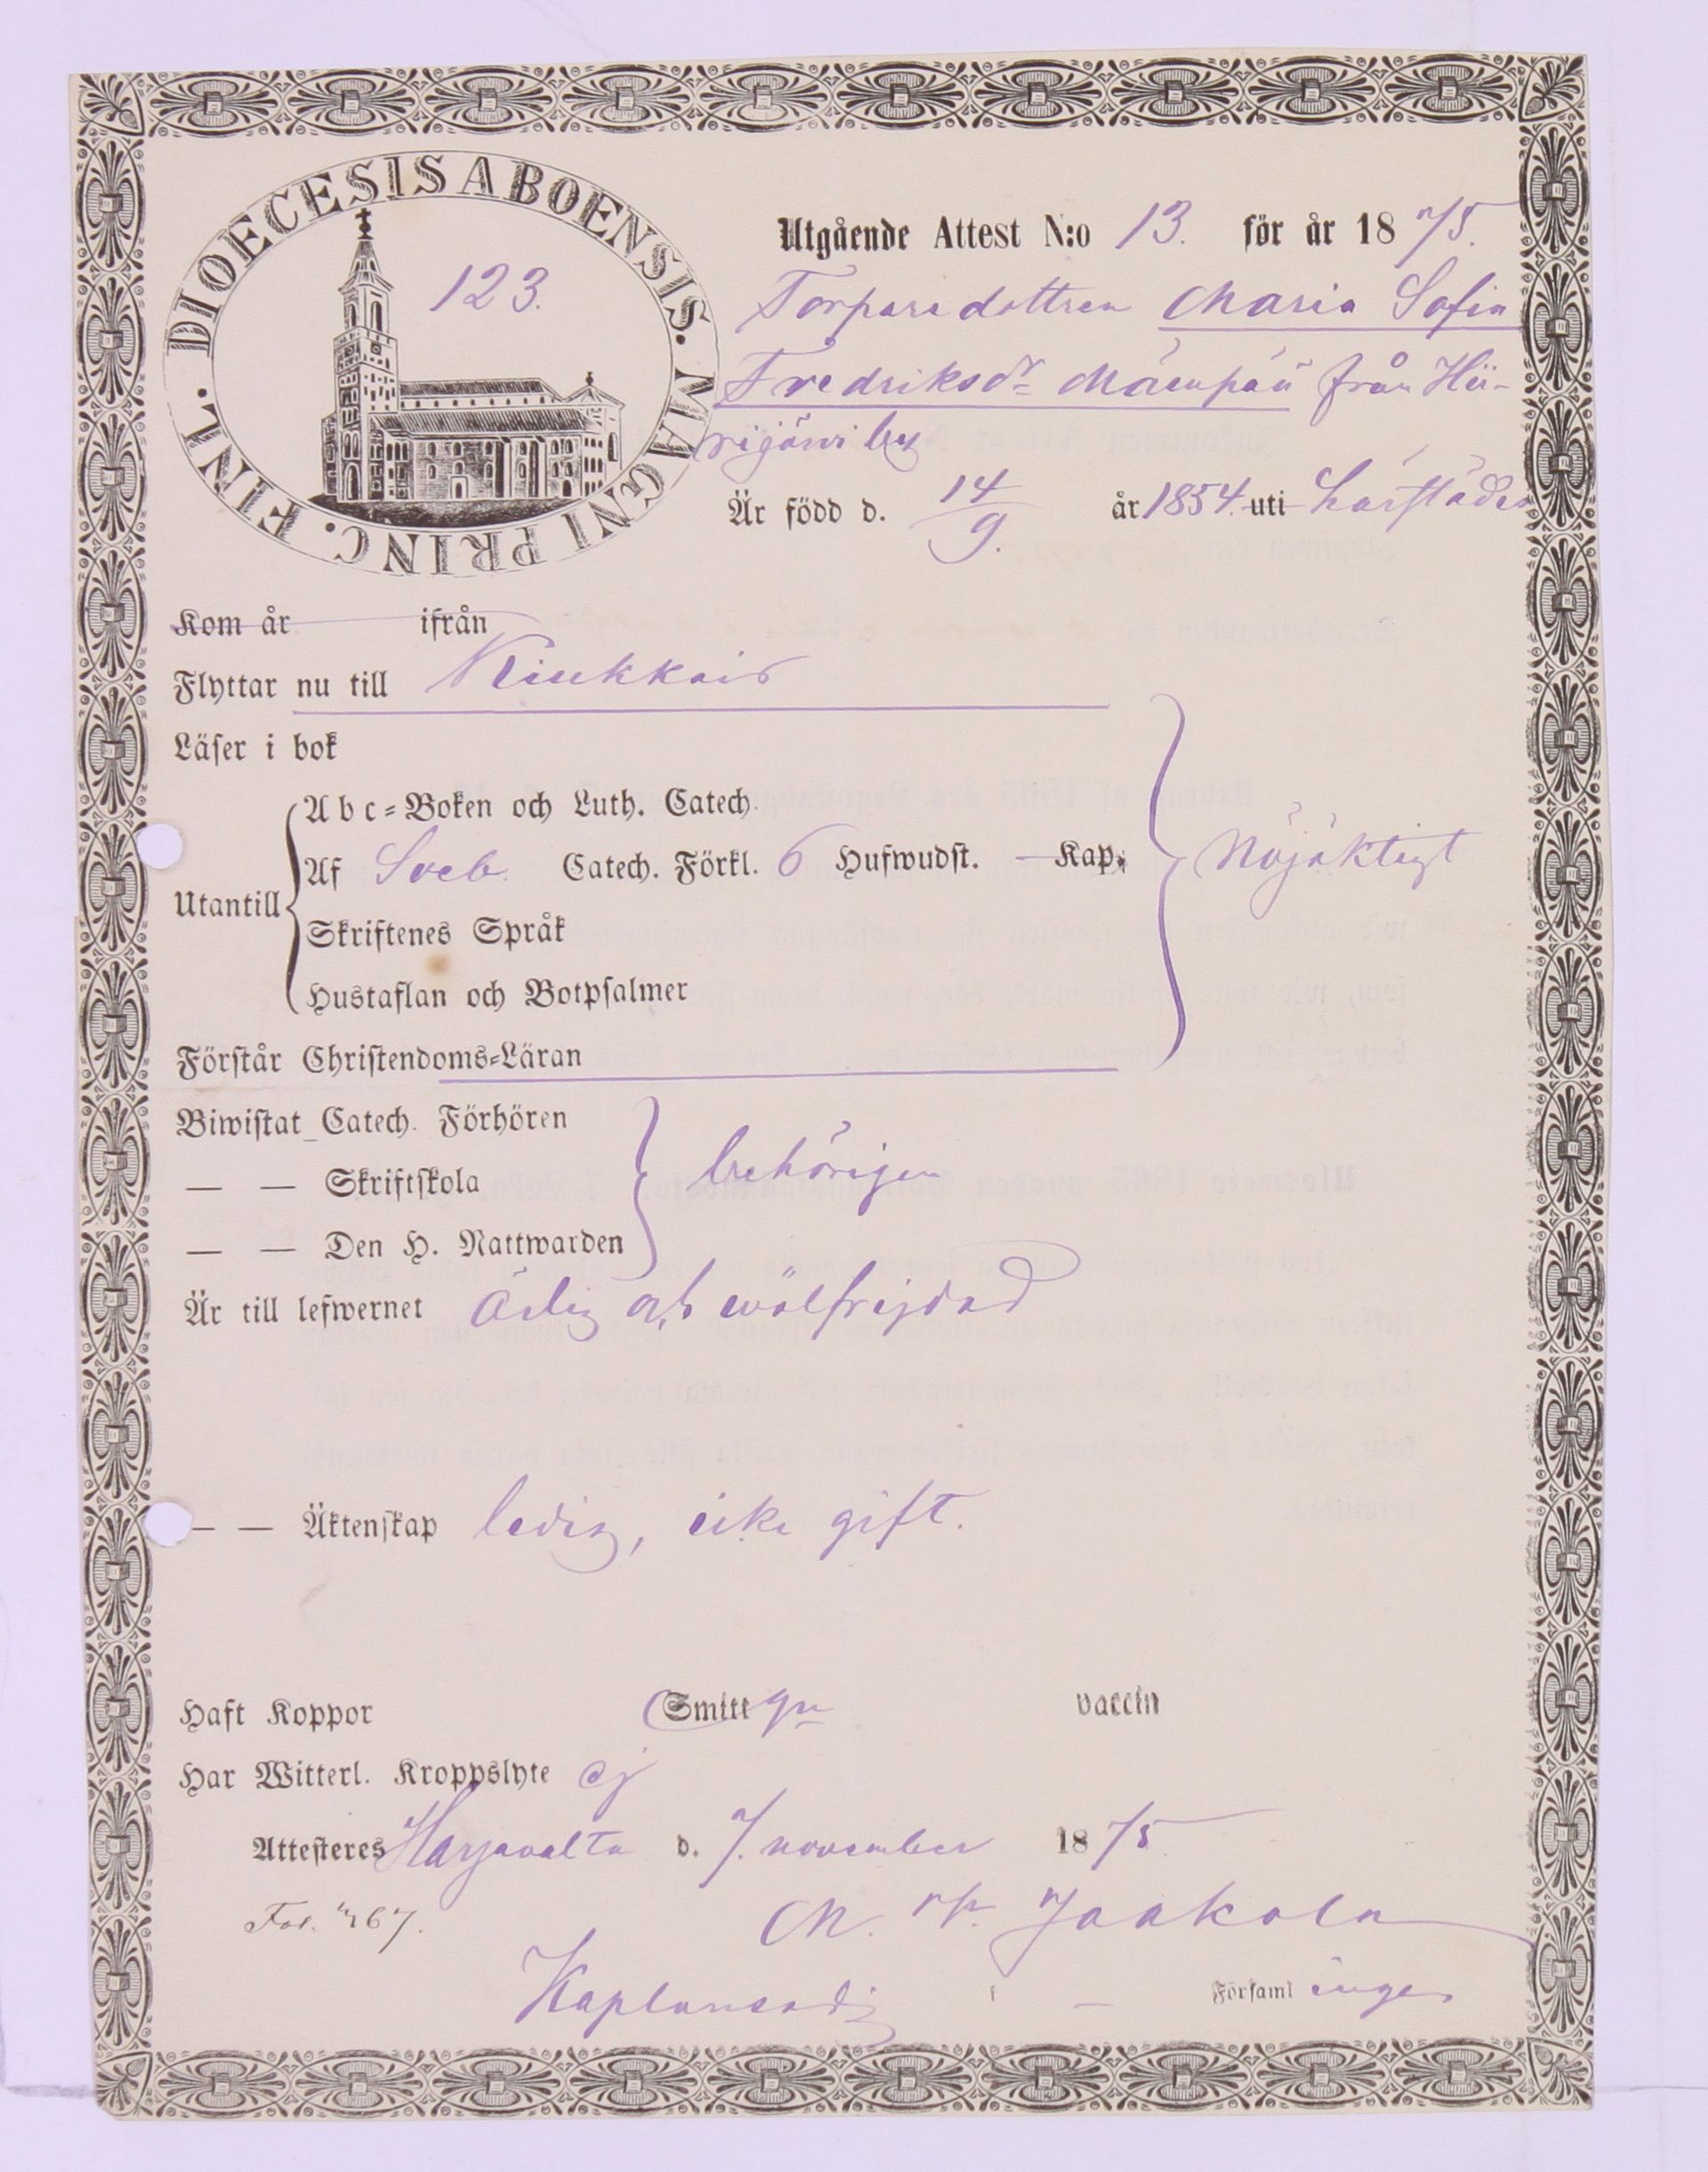 DIOECESIS ABOENSIS. MAGNI PRINC. FINL.
123.
Utgående Attest N:o 13. för år 1875.
Torparedottren Maria Sofia
Fredriksdr Mäenpää från Hii-
rijärvi by
Är född d. 14/9. år 1854. uti härstädes
Kom år ifrån
Flyttar nu till Kiukkais
Läser i bok
Abc-Boken och Luth. Catech.
Af Sveb. Catech. Förkl. 6 Hufwudst. — Kap. Nöjaktigt
Utantill
Skriftenes Språk
Hustaflan och Botpsalmer
Förstår Christendoms-Läran
Biwistat Catech. Förhören
— — Skriftskola behörigen
— — Den H. Nattwarden
Är till lefwernet Ärlig och wälfrejdad
— — Äktenskap ledig, icke gift.
Haft Koppor Smitt vaccin
Har Witterl. Kroppslyte ej
Attesteres Harjavalta d. 7. november 1875
Fol. 467.
Jaakola
Kaplansadj i — Församl ingen